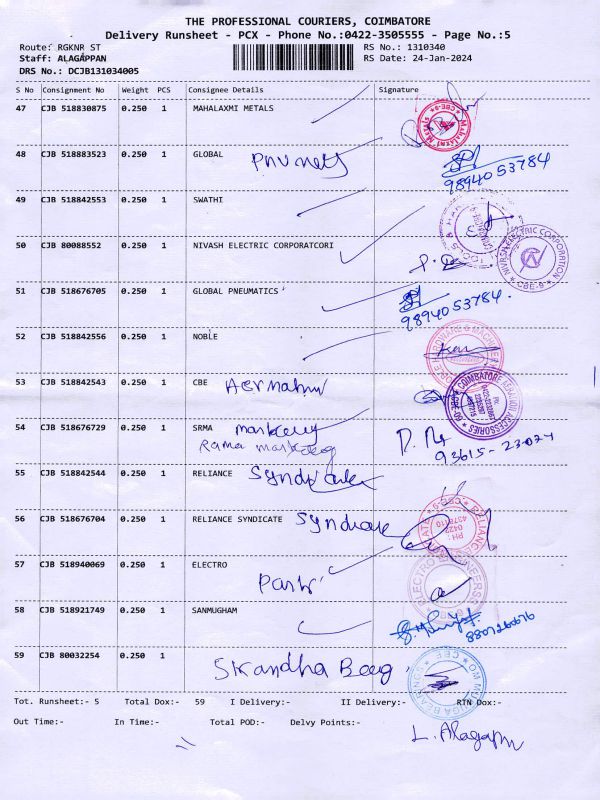 THE PROFESSIONAL COURIERS, COIMBATORE
Delivery Runsheet - PCX - Phone No.:0422-3505555 - Page No.:5
Route: RGKNR ST RS No.: 1310340
Staff: ALAGAPPAN RS Date: 24-Jan-2024
DRS No.: DCJB131034005
S No Consignment No Weight PCS Consignee Details Signature
47 CJB 518830875 0.250 1 MAHALAXMI METALS
48 CJB 518883523 0.250 1 GLOBAL
98940 53784
49 CJB 518842553 0.250 1 SWATHI
50 CJB 80088552 0.250 1 NIVASH ELECTRIC CORPORATCORI
NIVASH ELECTRIC CORPORATION CBE-9
51 CJB 518676705 0.250 1 GLOBAL PNEUMATICS
98940 53784.
52 CJB 518842556 0.250 1 NOBLE
53 CJB 518842543 0.250 1 CBE
54 CJB 518676729 0.250 1 SRMA
Rama
93615-23024
55 CJB 518842544 0.250 1 RELIANCE Syndicate
56 CJB 518676704 0.250 1 RELIANCE SYNDICATE Syndicate
57 CJB 518940069 0.250 1 ELECTRO
58 CJB 518921749 0.250 1 SANMUGHAM
59 CJB 80032254 0.250 1 Skandha Beag
OM MURUGA BEARINGS CBE
Tot. Runsheet:- 5 Total Dox:- 59 I Delivery:- II Delivery:- RTN Dox:-
Out Time:- In Time:- Total POD:- Delvy Points:-